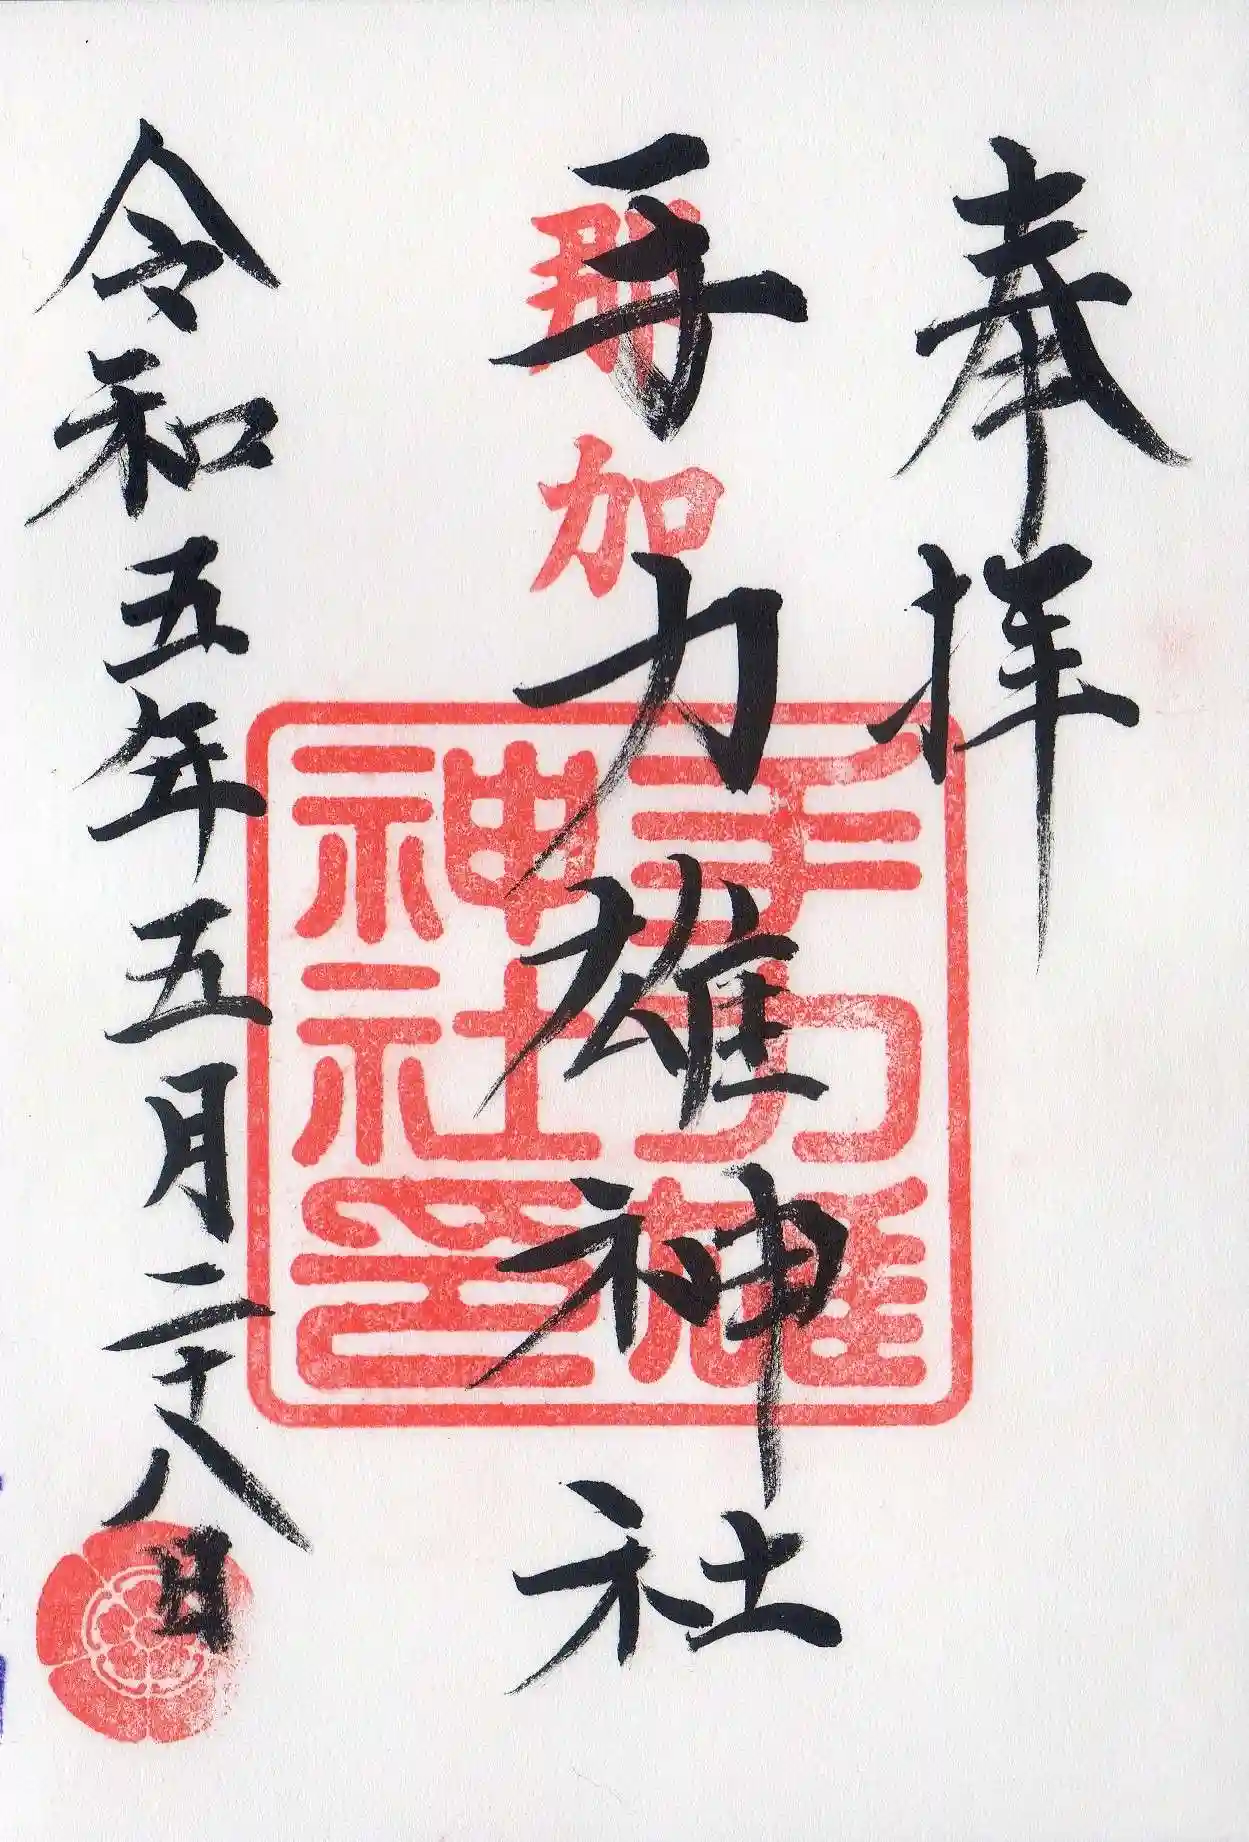 奉拝
那加
手力雄神社
手力雄
神社印
令和五年五月二十八日